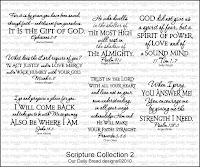 For it is by grace you have been saved,
through faith - and this not from yourselves,
It is the Gift of God.
Ephesians 2:8
He who dwells
in the shelter of
the Most High
will rest in
the shelter of
the Almighty.
Psalm 91:1
God did not give us
a spirit of fear, but a
spirit of power,
of love and of
sound mind
II Tim 1:7
What does the Lord require of you?
To act justly and to love mercy
and to walk humbly with your God.
Micah 6:8
If I go and prepare a place for you
I will come back
and take you to be with Me
Also be where I am
John 14:3
Trust in the Lord
with all your heart
and He will make
your paths straight
Proverbs 3:5-6
When I pray,
You answer me
the strength I need.
Psalm 138:3
Scripture Collection 2
Our Daily Bread designs©2010